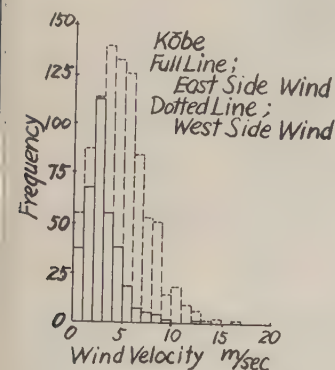 150
125
100
75
50
25
0
Frequency
Kōbe
Full Line;
East Side Wind
Dotted Line;
West Side Wind
0 5 10 15 20
Wind Velocity m/sec